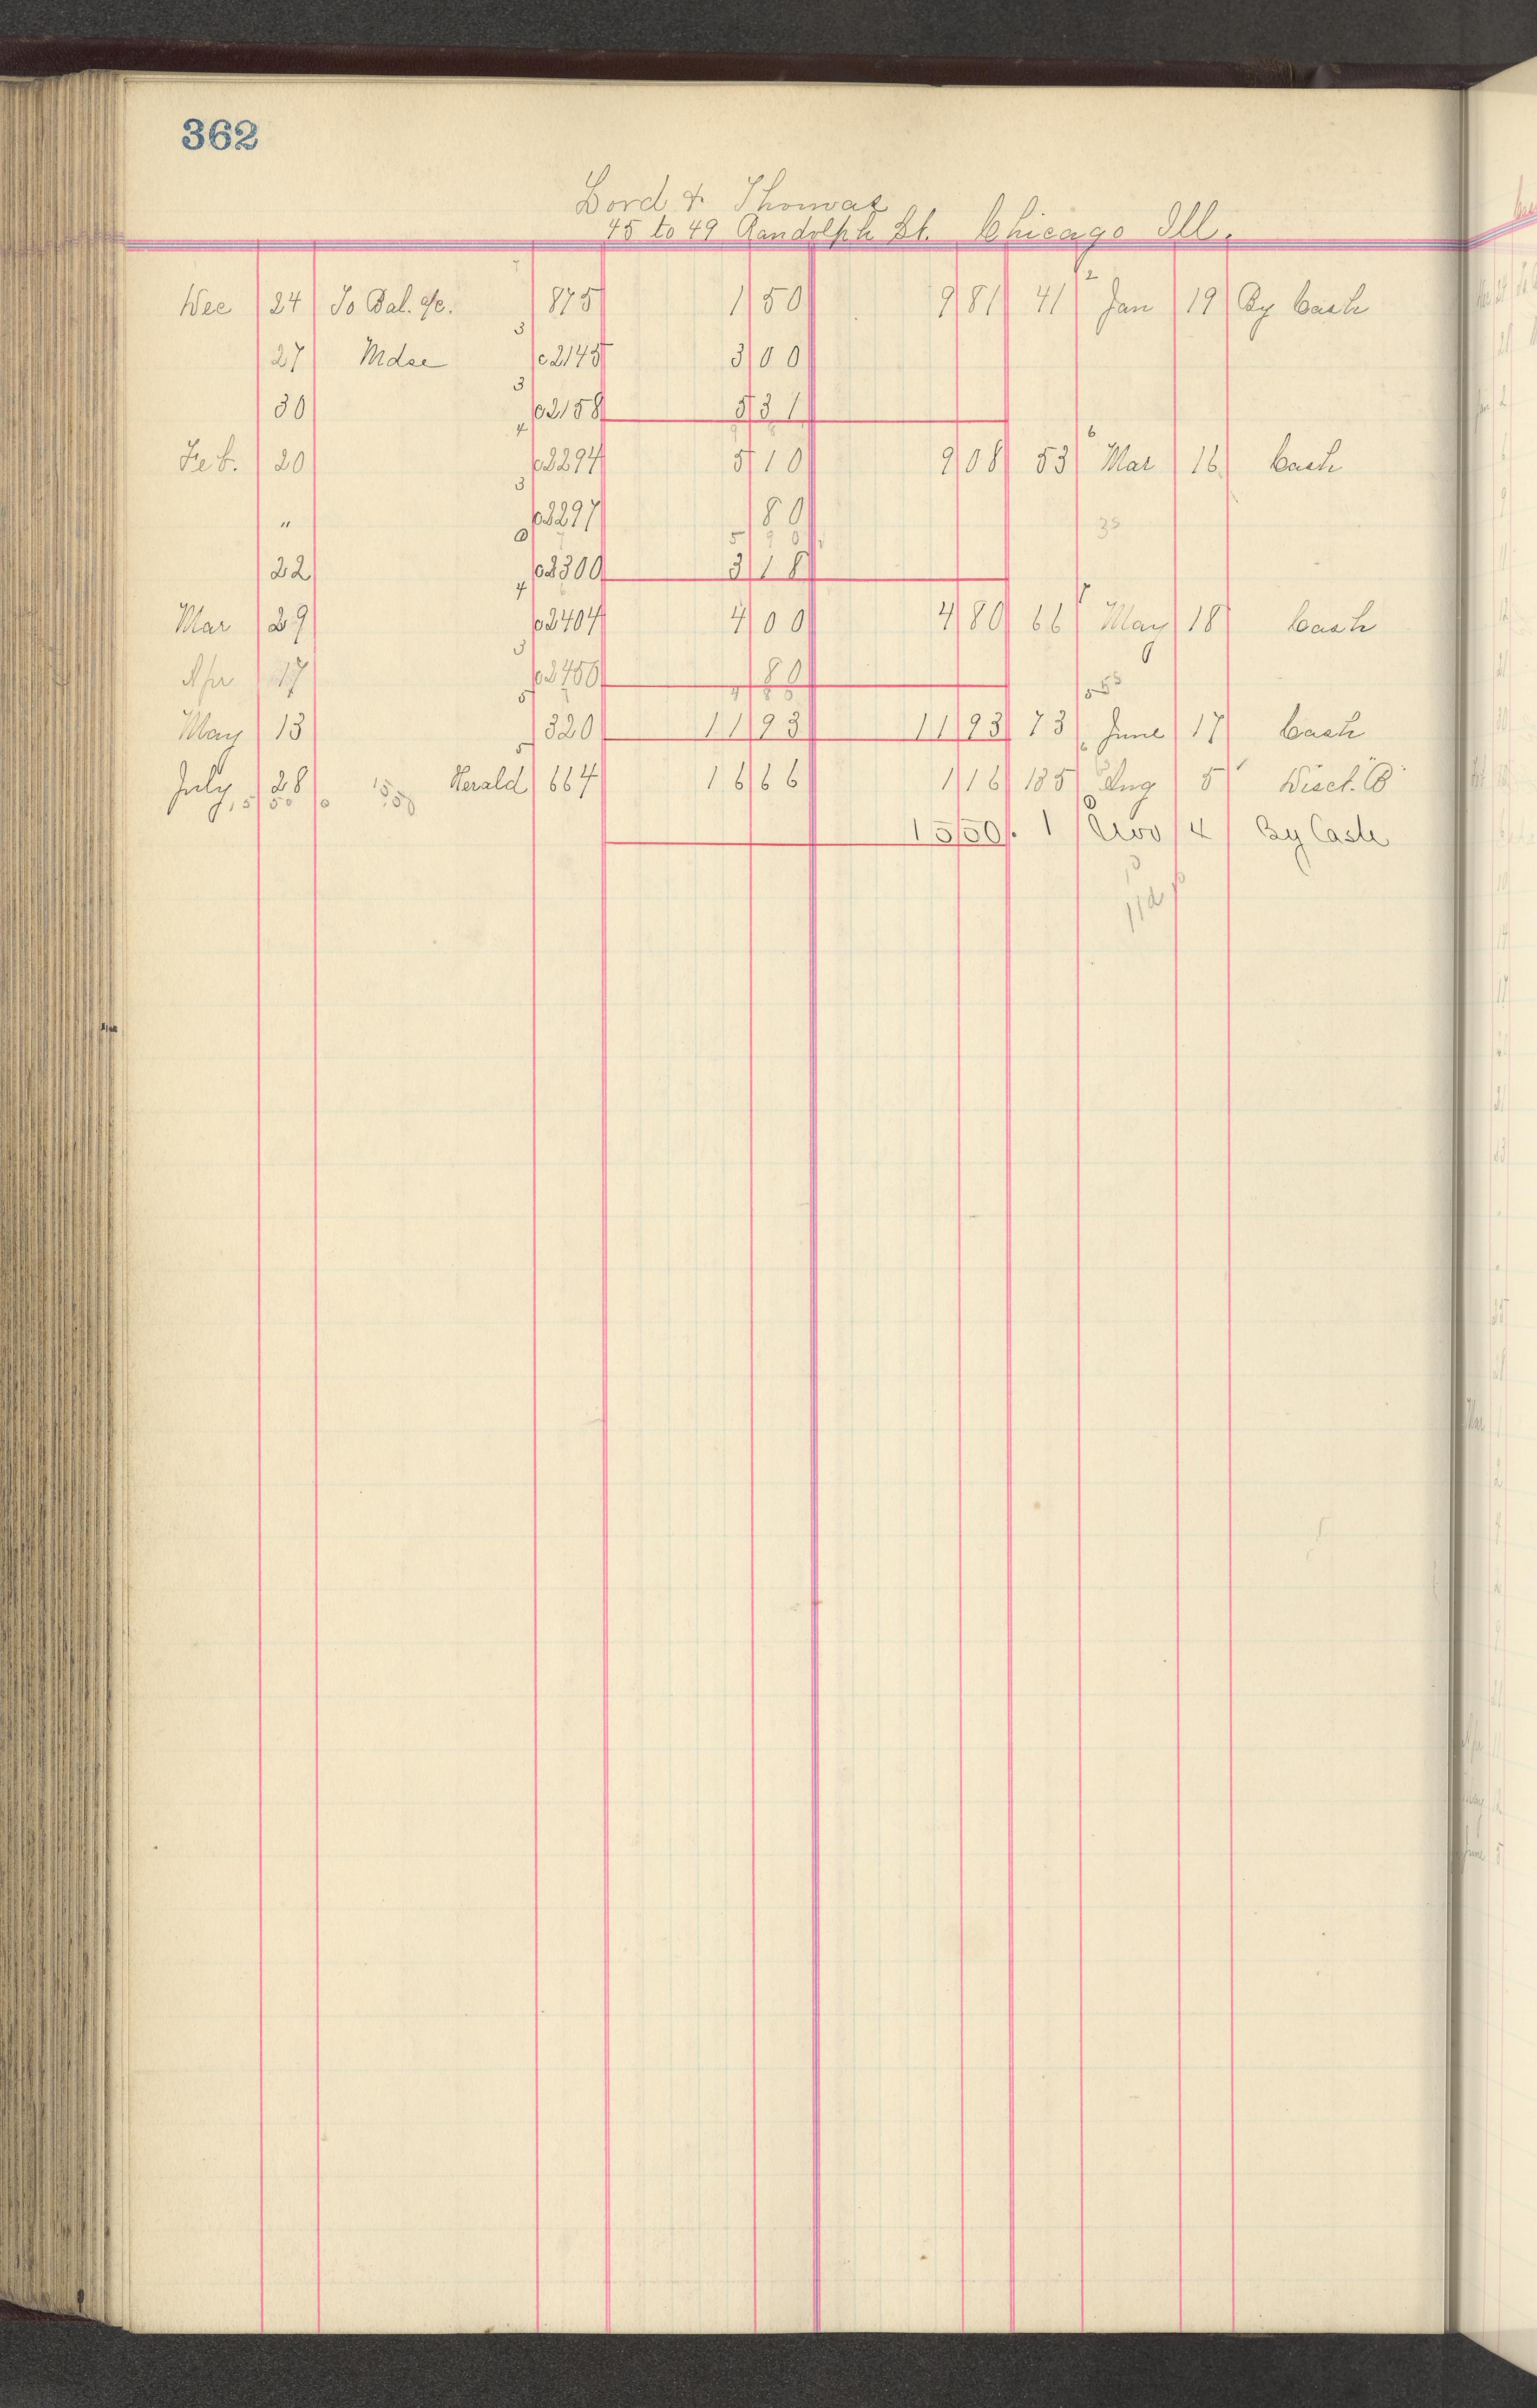 362
Lord & Thomas
45 to 49 Randolph St. Chicago Ill.
Dec 24 To Bal. a/c. 875 1 50 9 81 41 Jan 19 By Cash
27 Mdse c2145 3 00
30 c2158 5 31
Feb. 20 c2294 5 10 9 08 53 Mar 16 Cash
" c2297 80
22 c2300 3 18
Mar 29 c2404 4 00 4 80 66 May 18 Cash
Apr 17 80
May 13 320 11 93 11 93 73 June 17 Cash
July 28 Herald 664 16 66 1 16 185 Aug 5 Disct. B
15 50 1 Nov 4 By Cash